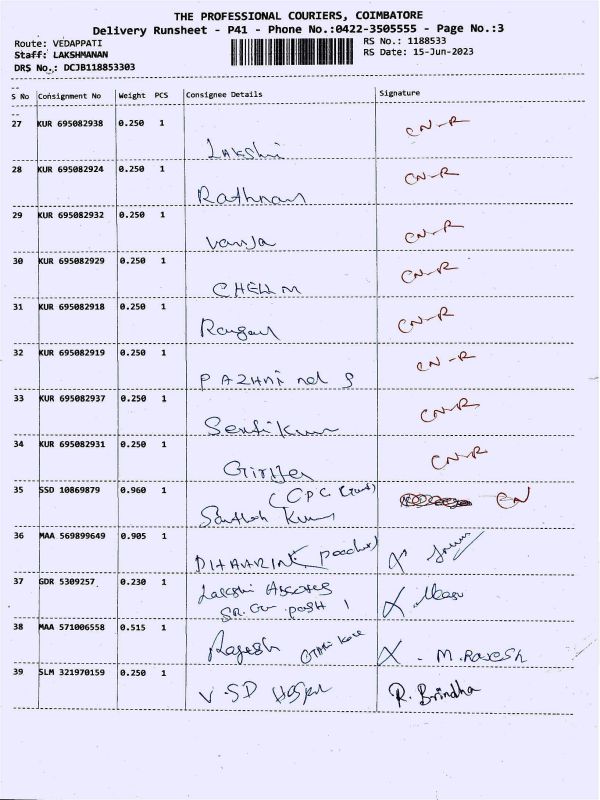 THE PROFESSIONAL COURIERS, COIMBATORE
Delivery Runsheet - P41 - Phone No.:0422-3505555 - Page No.:3
Route: VEDAPPATI
RS No.: 1188533
Staff: LAKSHMANAN
RS Date: 15-Jun-2023
DRS No.: DCJB118853303
S No Consignment No Weight PCS Consignee Details Signature
27 KUR 695082938 0.250 1 CN-R
Lakshi
28 KUR 695082924 0.250 1 CN-R
Rathnam
29 KUR 695082932 0.250 1 CN-R
Vanja
30 KUR 695082929 0.250 1 CN-R
CHELLM
31 KUR 695082918 0.250 1 CN-R
Rangan
32 KUR 695082919 0.250 1 CN-R
PAZHNI nd S
33 KUR 695082937 0.250 1 CN-R
34 KUR 695082931 0.250 1 CN-R
35 SSD 10869879 0.960 1 CN
Santhosh Kum
36 MAA 569899649 0.905 1
37 GDR 5309257 0.230 1
38 MAA 571006558 0.515 1
Rajesh X - M. Rajesh
39 SLM 321970159 0.250 1
VSD R. Brindha